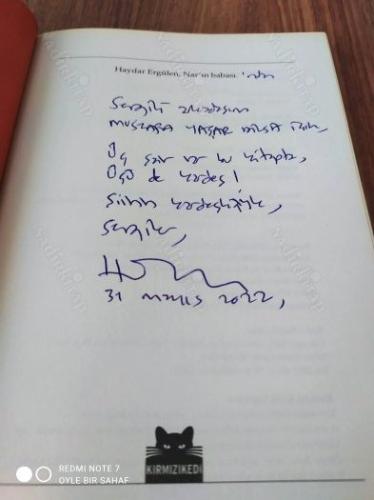 Haydar Ergülen, Nar'ın babası 'ndan
Sevgili arkadaşım
MUSTAFA YAŞAR için,
Üç şair var bu kitapta,
Üçü de kardeş!
Şiirin kardeşliğiyle,
Sevgiler,
31 MAYIS 2022,
KIRMIZIKEDİ
REDMI NOTE 7
OYLE BIR SAHAF